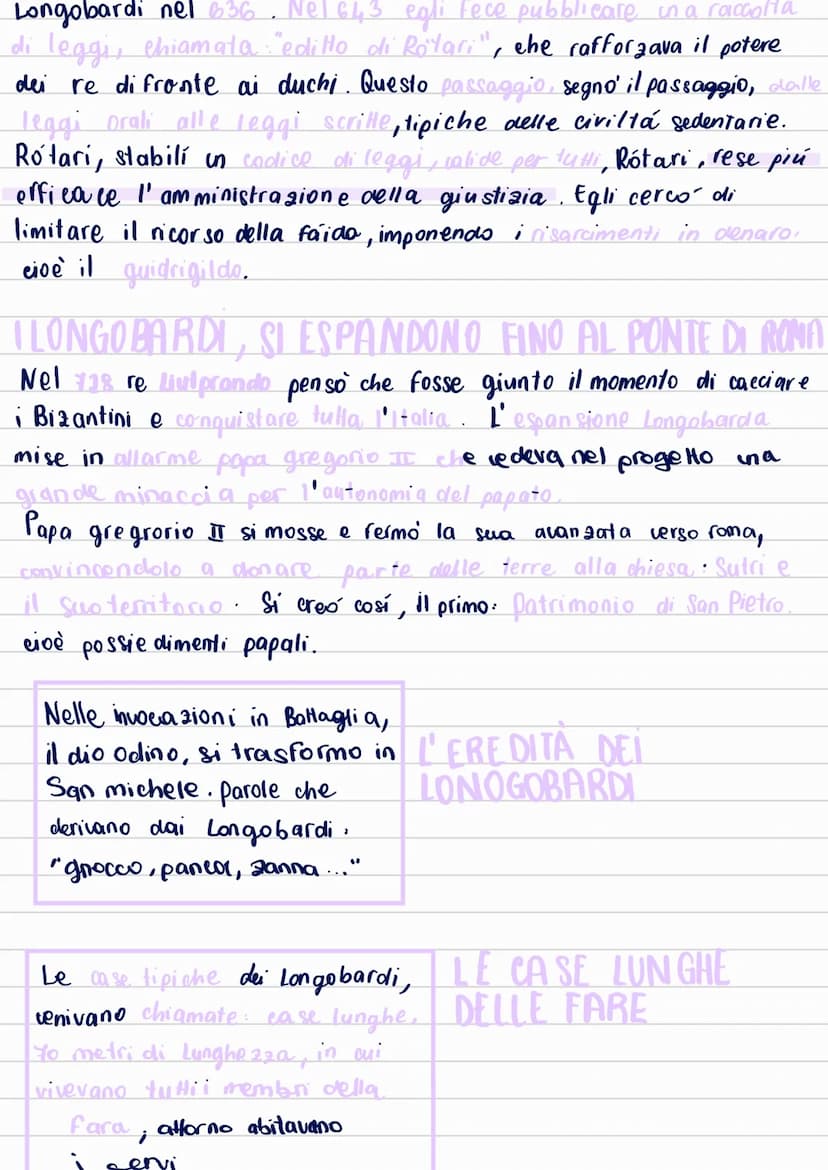 Longobardi nel 636. Nel 643 egli fece pubblicare una raccolta
di leggi, chiamata: "editto di Rótari", che rafforzava il potere
dei re di fronte ai duchi. Questo passaggio, segno' il passaggio, dalle
leggi orali alle leggi scritte, tipiche delle civiltá sedentarie.
Rótari, stabilí un codice di leggi, valide per tutti, Rótari, rese piú
efficace l'amministrazione della giustizia. Egli cercó di
limitare il ricorso della faida, imponendo i risarcimenti in denaro,
cioè il guidrigildo.
I LONGOBARDI, SI ESPANDONO FINO AL PONTE DI ROMA
Nel 728 re Liutprando pensò che fosse giunto il momento di cacciare
i Bizantini e conquistare tutta l'Italia. L'espansione Longobarda
mise in allarme papa gregorio II che vedeva nel progetto una
grande minaccia per l'autonomia del papato.
Papa gregrorio II si mosse e fermó la sua avanzata verso roma,
convincendolo a donare parte delle terre alla chiesa: Sutri e
il suo territorio. Si creó cosí, il primo: Patrimonio di San Pietro.
cioè possiedimenti papali.
Nelle invocazioni in Battaglia,
il dio odino, si trasformo in
San michele. parole che
derivano dai Longobardi:
"gnocco, panca, zanna..."
L'EREDITÀ DEI
LONOGOBARDI
Le case tipiche dei Longobardi,
venivano chiamate: case lunghe,
70 metri di lunghezza, in cui
vivevano tutti i membri della
fara, attorno abitavano
i servi
LE CASE LUNGHE
DELLE FARE